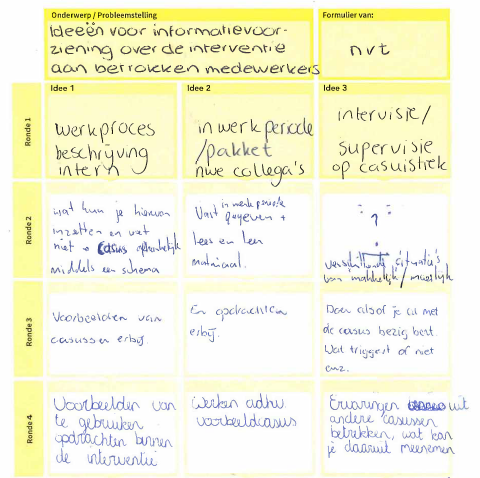 Onderwerp / Probleemstelling
Formulier van:
Ideeën voor informatievoor-
ziening over de interventie
aan betrokken medewerkers
nvt
Idee 1
Idee 2
Idee 3
Ronde 1
werkproces
beschrijving
intern
inwerkperiode
/pakket
nwe collega's
intervisie/
supervisie
op casuïstiek
Ronde 2
wat kun je hiervan
inzetten en wat
niet → casus
middels een schema
Vast in werkperiode
gegeven +
lees en leer
materiaal.
?
verschillende situatie's
van makkelijk/moeilijk
Ronde 3
Voorbeelden van
casussen erbij.
En opdrachten
erbij.
Doen alsof je al met
de casus bezig bent.
Wat triggert of niet
enz.
Ronde 4
Voorbeelden van
te gebruiken
opdrachten binnen
de interventie
Werken adhv.
voorbeeldcasus
Ervaringen uit
andere casussen
betrekken, wat kan
je daaruit meenemen